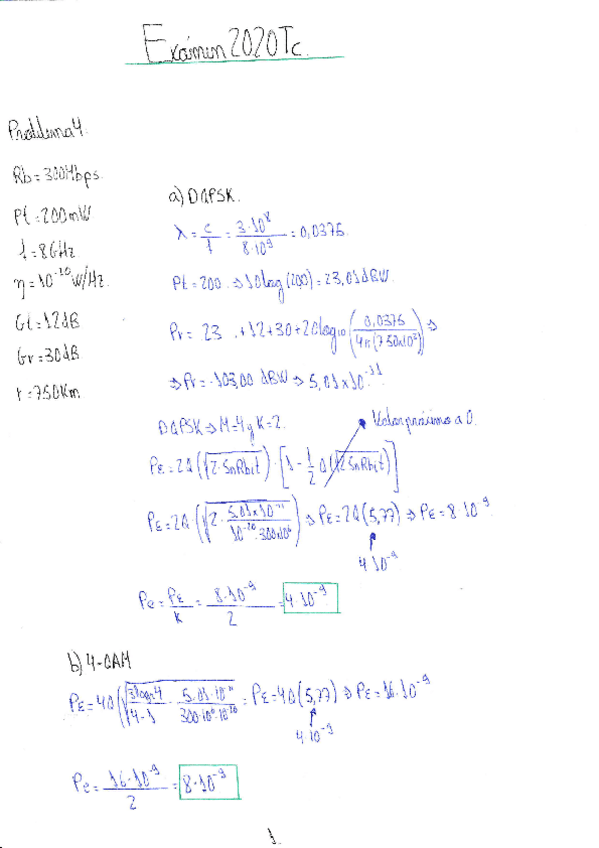 Exámen 2020Tc.
Problema 4.
Rb = 300Mbps.
Pt = 200mW
f = 8GHz
η = 10⁻²⁰ W/Hz.
Gt = 12dB
Gr = 30dB
r = 750Km.
a) DQPSK.
λ = c/f = 3·10⁸/8·10⁹ = 0,0375.
Pt = 200. ⇒ 10log(200) = 23,01dBW.
Pr = 23 .+12+30+20log₁₀(0,0375/4π(750x10³)) ⇒
⇒ Pr = -103,00 dBW ⇒ 5,01x10⁻¹¹
DQPSK ⇒ M=4 y K=2.
Valor próximo a 0.
PE = 2Q(√2·SnRbit)·[1 - 1/2 Q(√2SnRbit)]
PE = 2Q·(√2·5,01x10⁻¹¹/10⁻²⁰·300x10⁶) ⇒ PE = 2Q(5,77) ⇒ PE = 8·10⁻⁹.
4·10⁻⁹
Pe = PE/K = 8·10⁻⁹/2 = 4·10⁻⁹
b) 4-QAM
PE = 4Q(√3log₂4/4-1 · 5,01·10⁻¹¹/300·10⁶·10⁻²⁰ = PE = 4Q(5,77) ⇒ PE = 16·10⁻⁹
4·10⁻⁹
Pe = 16·10⁻⁹/2 = 8·10⁻⁹
1